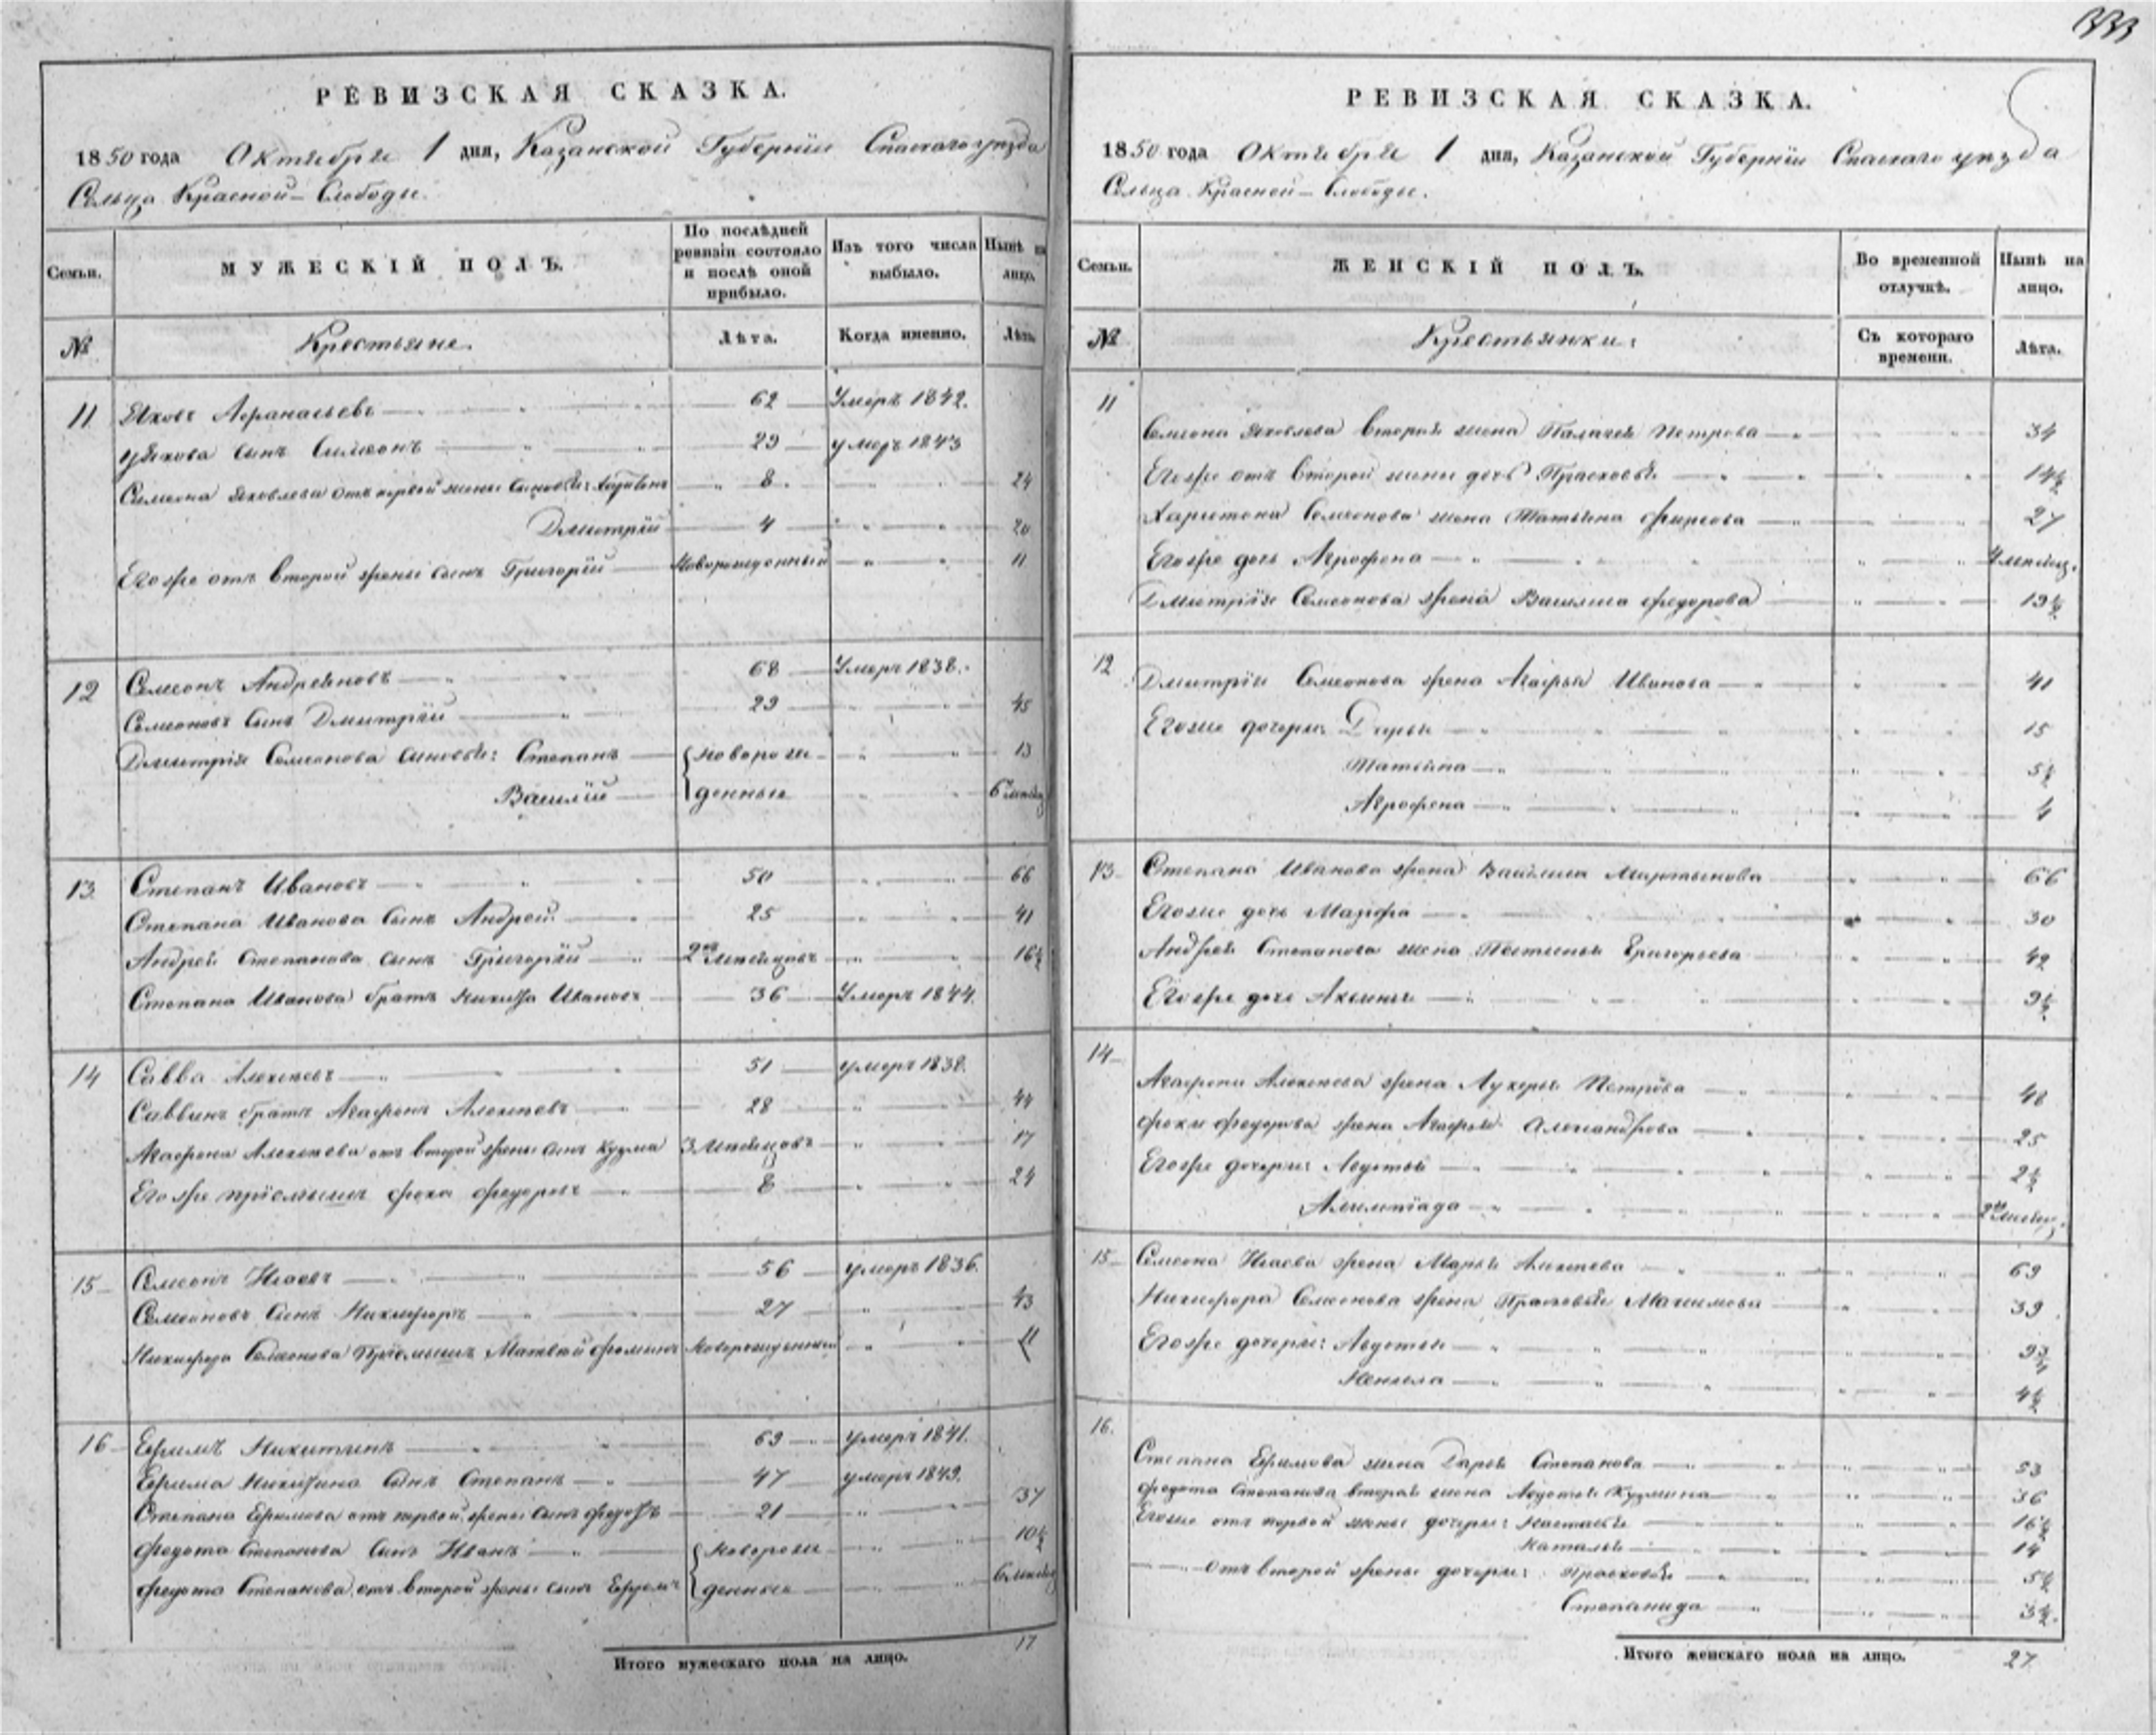 333
РЕВИЗСКАЯ СКАЗКА.
1850 года Октября 1 дня, Казанской Губернiи Спаскаго уезда
Сельца Красной-Слободы.
Семьи.
МУЖЕСКIЙ ПОЛЪ.
По послѣдней ревизiи состояло и послѣ оной прибыло.
Изъ того числа выбыло.
Нынѣ на лицо.
№
Крестьяне.
Лѣта.
Когда именно.
Лѣта.
11 Яковъ Афанасьевъ 62 Умеръ 1842.
у Якова сынъ Симеонъ 29 умеръ 1843
Симеона Яковлева отъ первой жены сыновья: Харитонъ 8. 24
Дмитрiй 4 20
Егоже отъ второй жены сынъ Григорiй Новорожденный 11
12 Семеонъ Андреяновъ 68 Умеръ 1838.
Семеоновъ сынъ Дмитрiй 29 45
Дмитрiя Семеонова сыновья: Степанъ новорож- 13
Василiй денные 6 месяц
13 Степанъ Ивановъ 50 66
Степана Иванова сынъ Андрей 25 41
Андрея Степанова сынъ Григорiй 2хъ месяцовъ 16½
Степана Иванова братъ Никита Ивановъ 36 Умеръ 1844.
14 Савва Алексеевъ 51 умеръ 1838.
Саввинъ братъ Агафонъ Алексеевъ 28 44
Агафона Алексеева отъ второй жены сынъ Кузма 3 месяцовъ 17
Егоже прiемышъ Фока Федоровъ 8 24
15 Семеонъ Исаевъ 56 умеръ 1836.
Семеоновъ сынъ Никифоръ 27 43
Никифора Семеонова прiемышъ Матвей Фоминъ Новорожденный 11
16 Ефимъ Никитинъ 69 умеръ 1841.
Ефима Никитина сынъ Степанъ 47 умеръ 1849.
Степана Ефимова отъ первой жены сынъ Федотъ 21 37
Федота Степанова сынъ Иванъ новорож- 10½
Федота Степанова отъ второй жены сынъ Ефремъ денные 6 месяц
Итого мужескаго пола на лицо. 17
РЕВИЗСКАЯ СКАЗКА.
1850 года Октября 1 дня, Казанской Губернiи Спаскаго уезда
Сельца Красной-Слободы.
Семьи.
ЖЕНСКIЙ ПОЛЪ.
Во временной отлучкѣ.
Нынѣ на лицо.
№
Крестьянки:
Съ котораго времени.
Лѣта.
11
Семеона Яковлева вторая жена Палагея Петрова 34
Егоже отъ второй жены дочь Прасковья 14½
Харитона Семеонова жена Татьяна Фирсова 27
Егоже дочь Агрофена месяц.
Дмитрiя Семеонова жена Василиса Федорова 19½
12 Дмитрiя Семеонова жена Агафья Иванова 41
Егоже дочери: Дарья 15
Татьяна 5½
Агрофена 4
13 Степана Иванова жена Василиса Мартынова 66
Егоже дочь Марфа 30
Андрея Степанова жена Григорьева 42
Егоже дочь Аксинья 9½
14
Агафона Алексеева жена Лукерья Петрова 48
Фоки Федорова жена Агафья Александрова 25
Егоже дочери: Авдотья 2½
Алимпiада 2хъ месяц.
15 Семеона Исаева жена Марья Алексеева 69
Никифора Семеонова жена Прасковья Максимова 39
Егоже дочери: Авдотья 9¾
4½
16.
Степана Ефимова жена Дарья Степанова 53
Федота Степанова вторая жена Авдотья Кузмина 36
Егоже отъ первой жены дочери: Настасья 16½
Наталья 14
отъ второй жены дочери: Прасковья 5½
Степанида 3½.
Итого женскаго пола на лицо. 27